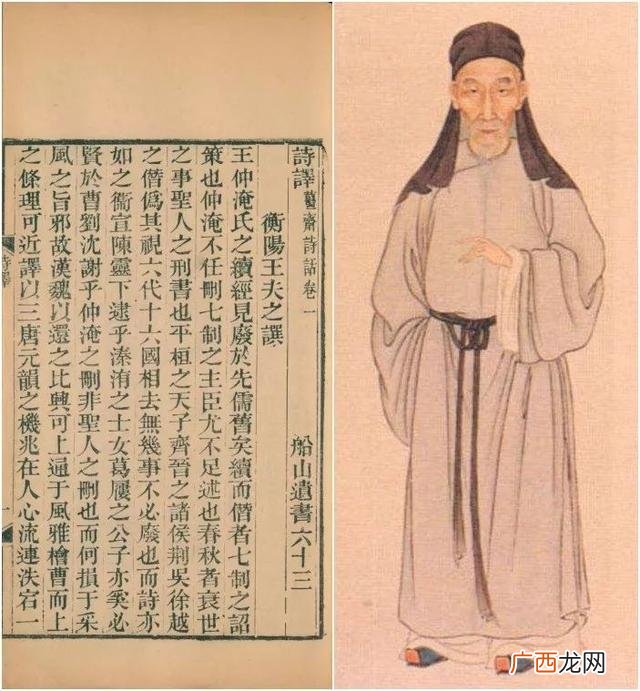 詩譯 薑齋詩話卷一 船山遺書六十三
衡陽王夫之譔
王仲淹氏之續經見廢於先儒舊矣續而僭者七制之詔
策也仲淹不任刪七制之主臣尤不足述也春秋者衰世
之事聖人之刑書也平桓之天子齊晉之諸侯荆吳徐越
之僭僞其視六代十六國相去無幾事不必廢也而詩亦
如之衞宣陳靈下逮乎溱洧之士女葛屨之公子亦奚必
賢於曹劉沈謝乎仲淹之刪非聖人之刪也而何損于采
風之旨邪故漢魏以還之比興可上通于風雅檜曹而上
之條理可近譯以三唐元韻之機兆在人心流連泆宕一
詩譯
一
广西龙网